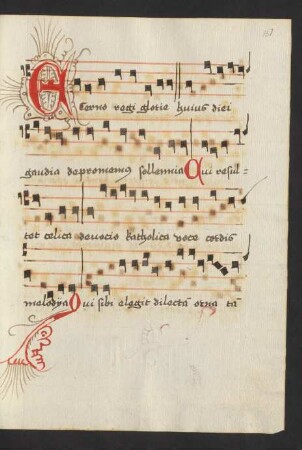 Eterno regi glorie huius diei
gaudia depromamus sollennia Qui resul-
tet celica devocio katholica voce cordis
melodya Qui sibi elegit dilectā orna tā